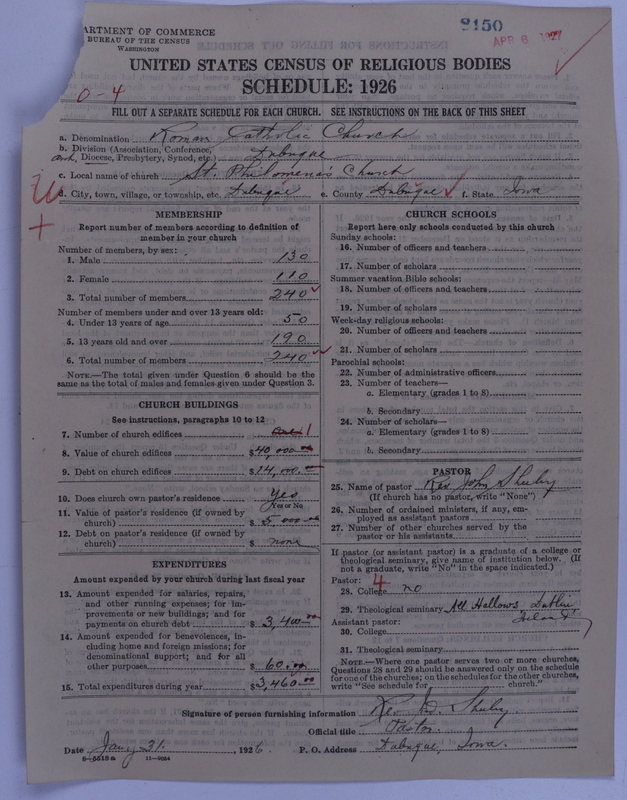 ARTMENT OF COMMERCE
BUREAU OF THE CENSUS
WASHINGTON
9150
APR 6 1927
UNITED STATES CENSUS OF RELIGIOUS BODIES
SCHEDULE: 1926
0-4
FILL OUT A SEPARATE SCHEDULE FOR EACH CHURCH. SEE INSTRUCTIONS ON THE BACK OF THIS SHEET
a. Denomination Roman Catholic Church
b. Division (Association, Conference,
Arch, Diocese, Presbytery, Synod, etc.) Dubuque
c. Local name of church St. Philomena's Church
d. City, town, village, or township, etc. Dubuque e. County Dubuque f. State Iowa
MEMBERSHIP
Report number of members according to definition of
member in your church
Number of members, by sex:
1. Male 130
2. Female 110
3. Total number of members 240
Number of members under and over 13 years old:
4. Under 13 years of age 50
5. 13 years old and over 190
6. Total number of members 240
NOTE.—The total given under Question 6 should be the
same as the total of males and females given under Question 3.
CHURCH BUILDINGS
See instructions, paragraphs 10 to 12
7. Number of church edifices 1
8. Value of church edifices $40,000.00
9. Debt on church edifices $14,000.00
10. Does church own pastor's residence? Yes
Yes or No
11. Value of pastor's residence (if owned by
church) $ 5,000.00
12. Debt on pastor's residence (if owned by
church) $ none
EXPENDITURES
Amount expended by your church during last fiscal year
13. Amount expended for salaries, repairs,
and other running expenses; for im-
provements or new buildings; and for
payments on church debt $ 3,400.00
14. Amount expended for benevolences, in-
cluding home and foreign missions; for
denominational support; and for all
other purposes $ 60.00
15. Total expenditures during year $3,460.00
CHURCH SCHOOLS
Report here only schools conducted by this church
Sunday schools:
16. Number of officers and teachers
17. Number of scholars
Summer vacation Bible schools:
18. Number of officers and teachers
19. Number of scholars
Week-day religious schools:
20. Number of officers and teachers
21. Number of scholars
Parochial schools:
22. Number of administrative officers
23. Number of teachers—
a. Elementary (grades 1 to 8)
b. Secondary
24. Number of scholars—
a. Elementary (grades 1 to 8)
b. Secondary
PASTOR
25. Name of pastor Rev. John
(If church has no pastor, write "None")
26. Number of ordained ministers, if any, em-
ployed as assistant pastors
27. Number of other churches served by the
pastor or his assistants
If pastor (or assistant pastor) is a graduate of a college or
theological seminary, give name of institution below. (If
not a graduate, write "No" in the space indicated.)
Pastor: 4
28. College no
29. Theological seminary All Hallows Dublin
Assistant pastor:
30. College
31. Theological seminary
NOTE.—Where one pastor serves two or more churches,
Questions 28 and 29 should be answered only on the schedule
for one of the churches; on the schedules for the other churches,
write "See schedule for church."
Signature of person furnishing information Rev.
Official title Pastor.
Date Jany 31. , 1926. P. O. Address Dubuque, Iowa.
8-5518a 11-9054